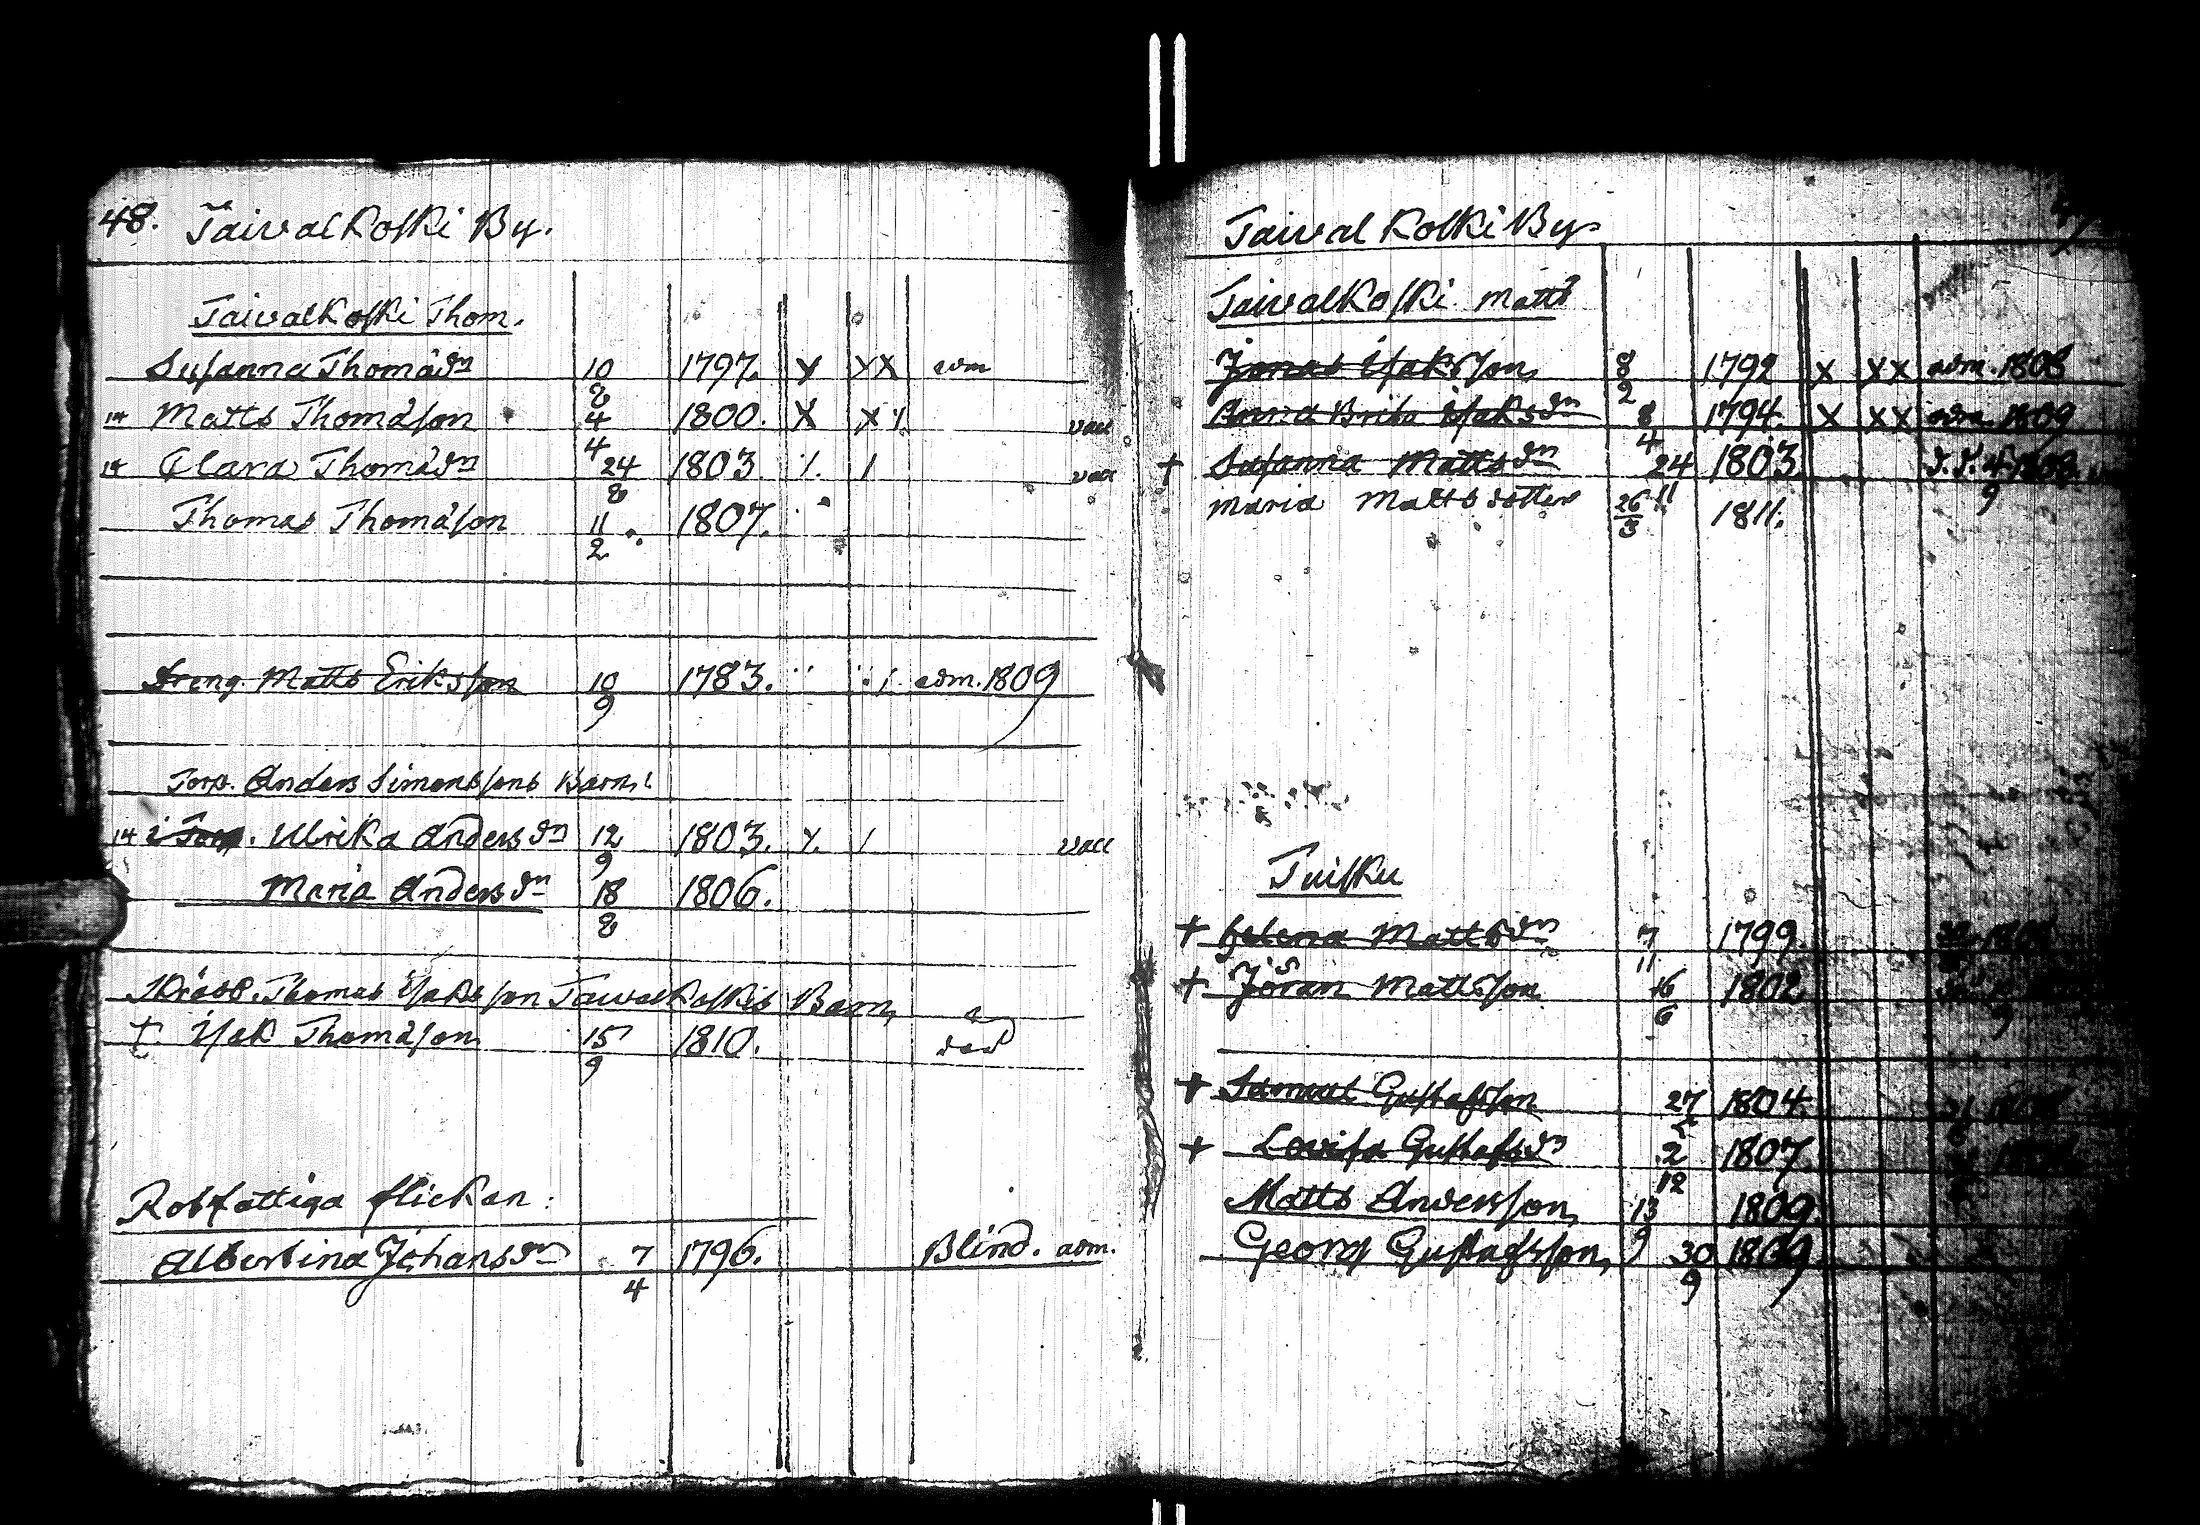 48. Taivalkoski By.
Taivalkoski Thom.
Susanna Thomädn 10/8 1797. X XX adm
14 Matts Thomäson 4/4 1800. X X/. vacc
14 Clara Thomädn 24/8 1803 /. / vacc
Thomas Thomäson 11/2 1807.
Dreng Matts Eriksson 10/9 1783. adm. 1809
Torp. Anders Simonssons Barn:
14 Ulrika Andersdn 12/9 1803. /. / vacc
Maria Andersdn 18/8 1806.
Thomas Isaksson Taivalkoskis Barn
† Isak Thomäson 15/9 1810. död
Rotfattiga flickan:
Albertina Johansdn 7/4 1796. Blind. adm.
Taival Koski By
Taivalkoski Matts
Jonas Isaksson 8/2 1792 X XX adm. 1808
Anna Brita Isaksdn 8/4 1794. X XX adm. 1809
† Susanna Mattsdn 24/11 1803.
Maria Mattsdotter 26/3 11 1811.
Tuisku
† Helena Mattsdn 7/11 1799.
† Jöran Mattsson 16/6 1802.
† Samuel Gustafsson 27 1804.
† Lovisa Gustafsdn 2/12 1807.
Matts Andersson 13/9 1809.
Georg Gustafsson 30/9 1809.